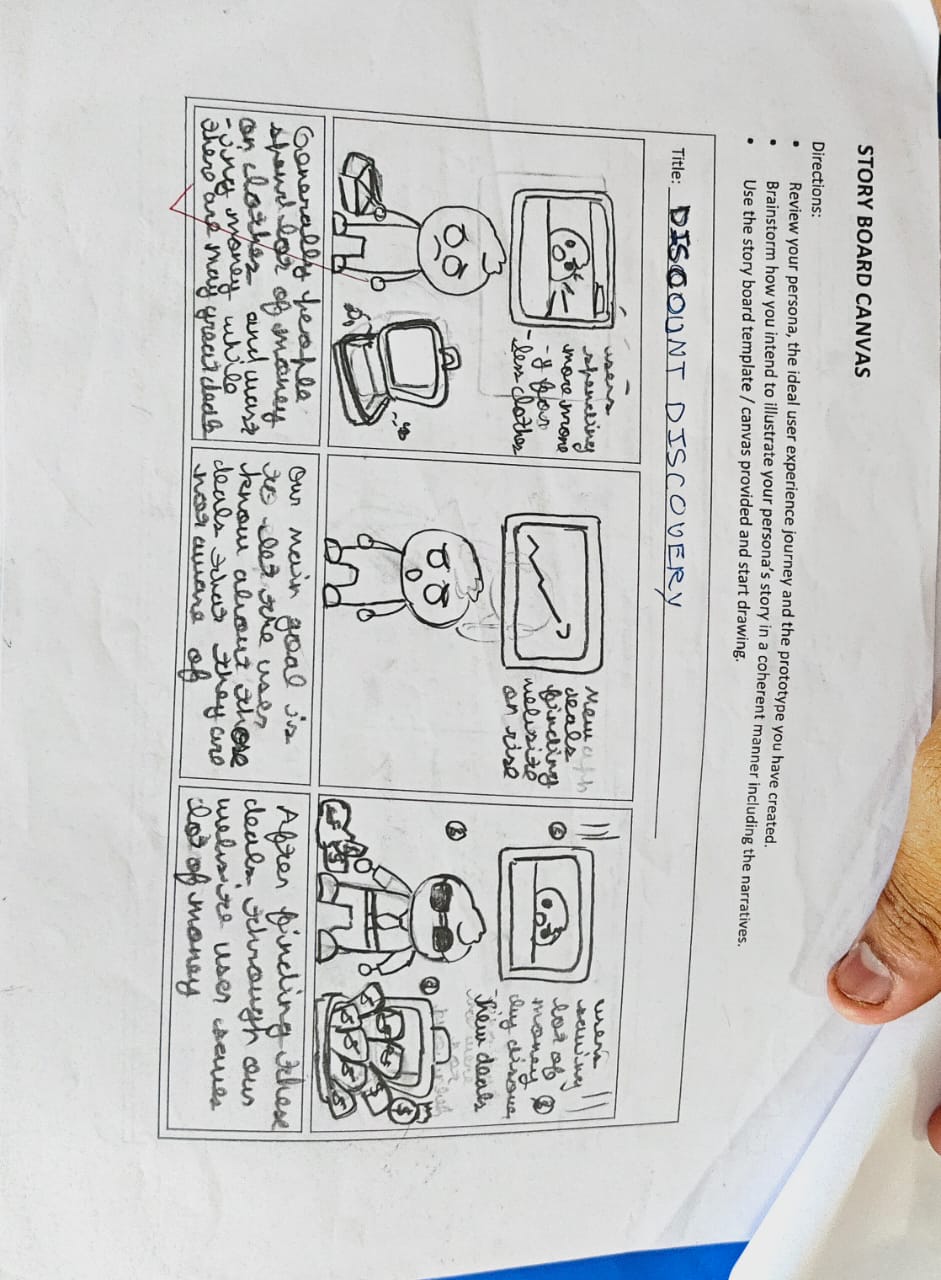 STORY BOARD CANVAS
Directions:
• Review your persona, the ideal user experience journey and the prototype you have created.
• Brainstorm how you intend to illustrate your persona's story in a coherent manner including the narratives.
• Use the story board template / canvas provided and start drawing.
Title: DISCOUNT DISCOVERY
users
spending
more mone
-y for
-less clothes
New
deals
finding
website
on rise
users
saving
lot of
money
by disove
new deals
Generally people
spend lot of money
on clothes and wast
-ing money while
there are may great deals
our main goal is
to let the user
know about those
deals that they are
not aware of
After finding these
deals through our
website user saves
lot of money